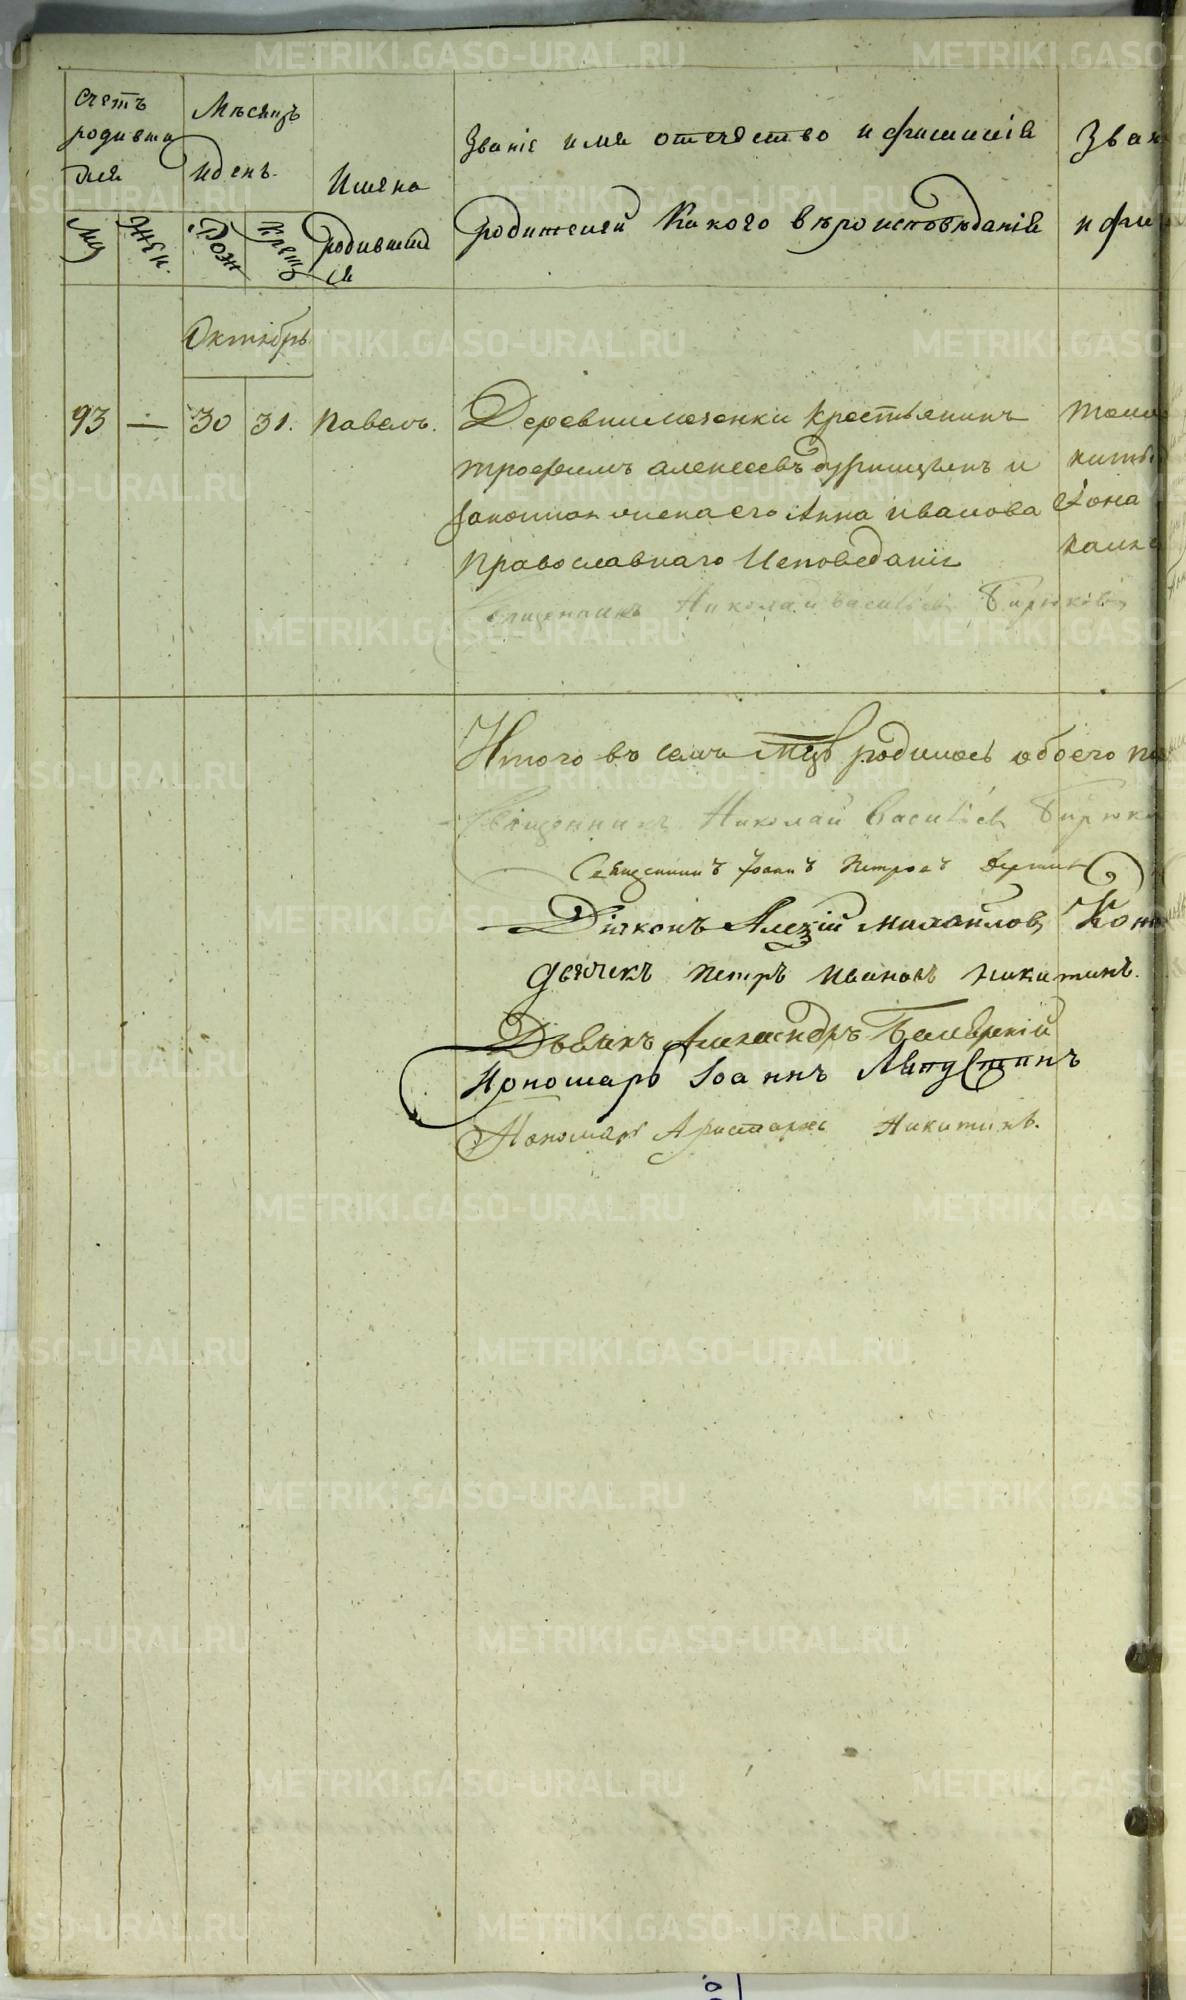 Счетъ
родивши
хся
Мѣсяцъ
и день.
Имена
родивших
ся
Званіе имя отечество и фамилія
родителей Какого вѣроисповѣданія
Зван
и фам
Му
Жен.
Рож
Крещ
Октябрь
93 — 30 31. Павелъ.
Деревни
Крестьянинъ
трофимъ алексеевъ и
законная жена его Анна иванова
Православнаго Исповеданіе
Священникъ Николай Васильевъ Бирюковъ
Итого въ семъ мцѣ родилось обоего по
Священникъ Николай Васильевъ Бирюко
Священникъ Іоаннъ Петровъ
Діаконъ Алексій михайловъ
дьячекъ петръ Ивановъ никитинъ.
Дьячекъ Александръ
Пономарь Іоаннъ
Пономарь Аристархъ Никитинъ.
METRIKI.GASO-URAL.RU